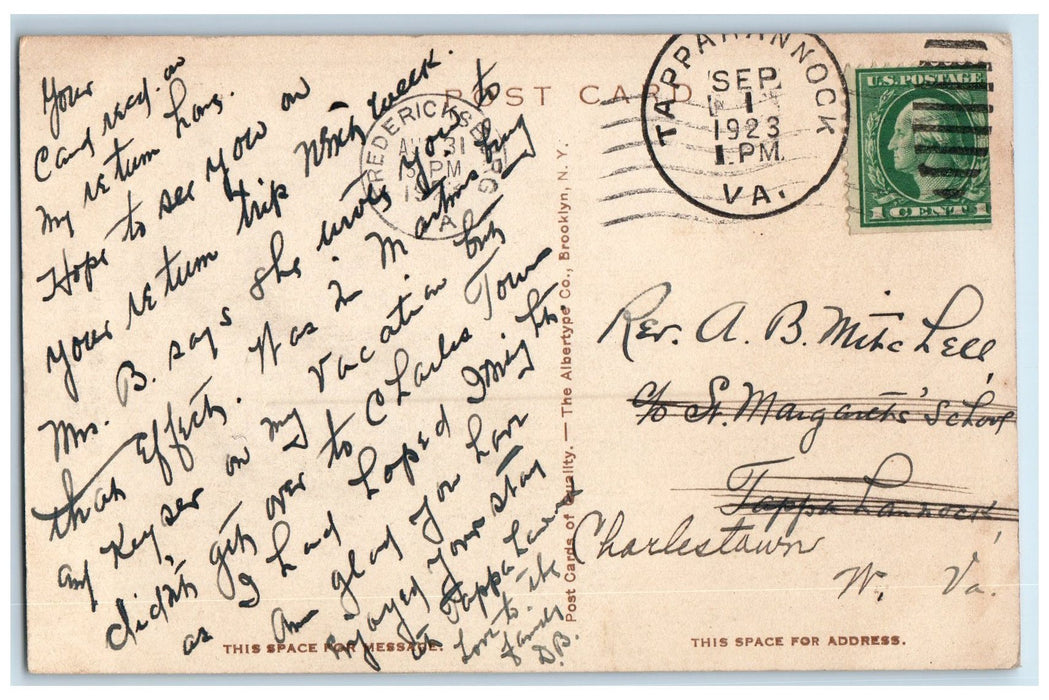 POST CARD
TAPPAHANNOCK
SEP
1
1923
1 PM
VA.
U.S. POSTAGE
1 CENT 1
FREDERICKSBURG
AUG 31
PM
VA
Your
Card rec'd. on
my return home.
Hope to see you on
your return trip next week.
Mrs. B. says she wrote you to
that effect. Was in Martinsburg
and Keyser on my vacation but
didn't get over to Charles Town
as I had hoped I might.
Am glad you have
enjoyed your stay
at Tappahannock
Love to the
family
D.B.
Post Cards of Quality. — The Albertype Co., Brooklyn, N. Y.
Rev. A. B. Mitchell,
c/o St. Margaret's School
Tappahannock,
Charlestown
W. Va.
THIS SPACE FOR MESSAGE.
THIS SPACE FOR ADDRESS.